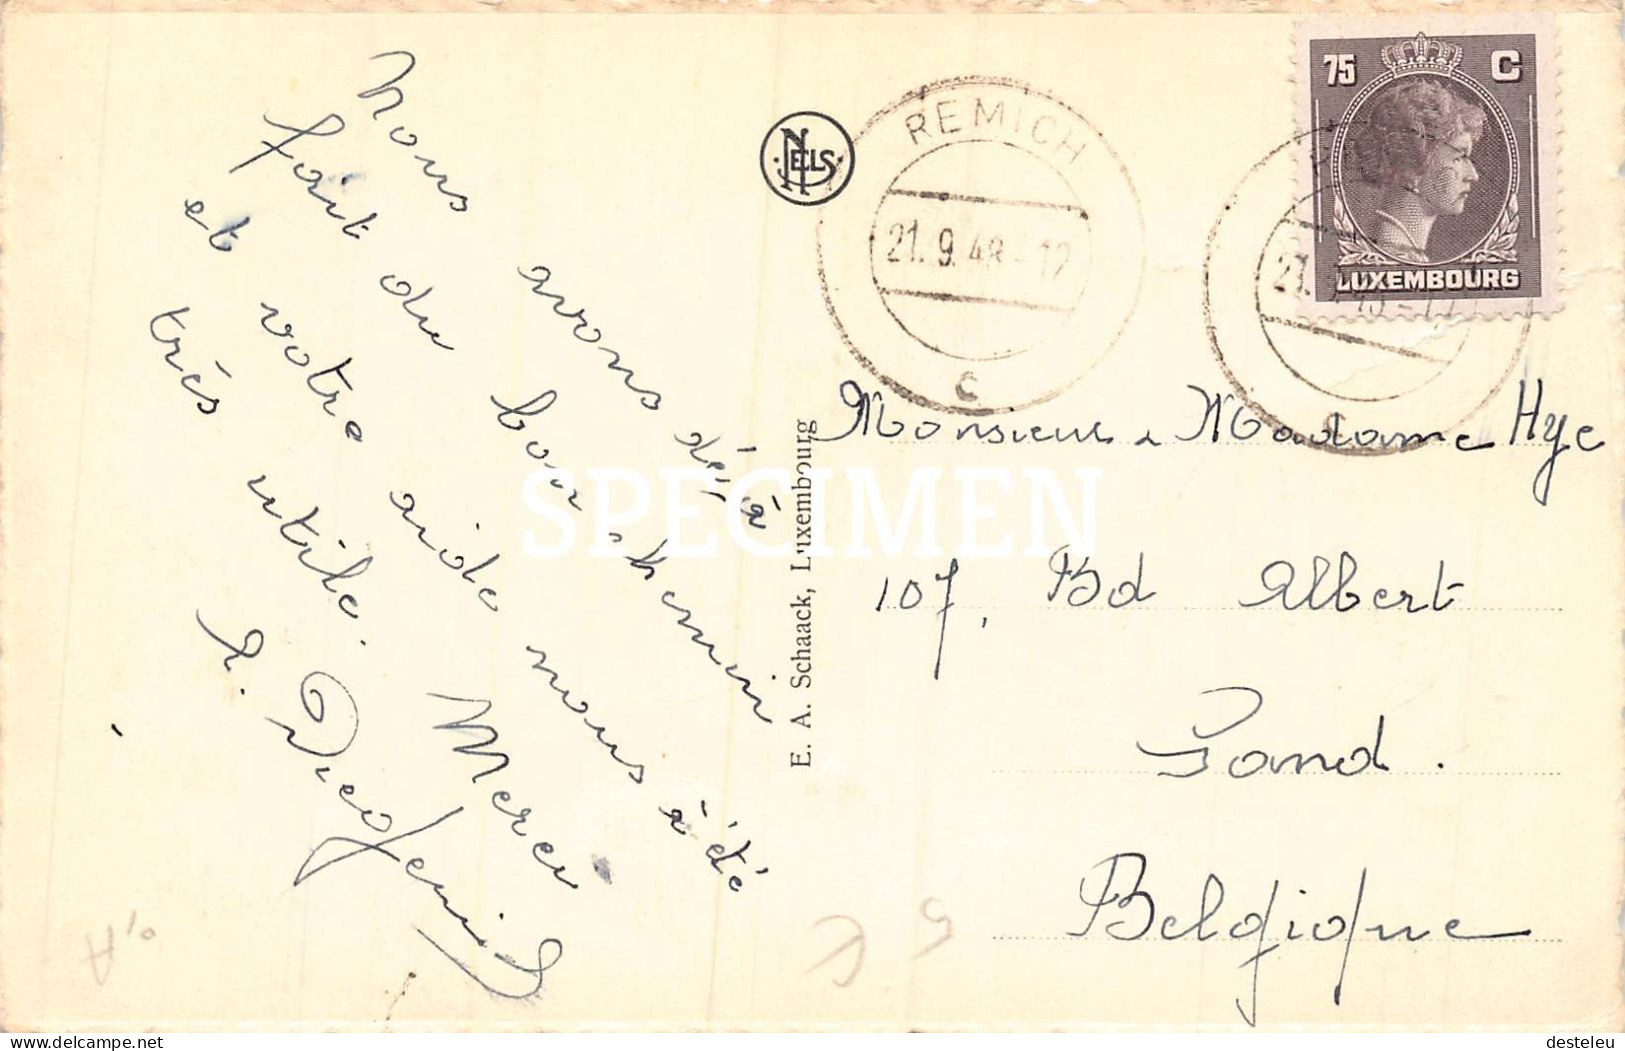 Nous avons déjà
fait du bon chemin
et votre aide nous a été
très utile. Merci
NELS
E. A. Schaack, Luxembourg
REMICH
21. 9. 48 - 12
C
75 C
LUXEMBOURG
Monsieur & Madame Hye
107, Bd Albert
Gand.
Belgique
SPECIMEN
delcampe.net
desteleu